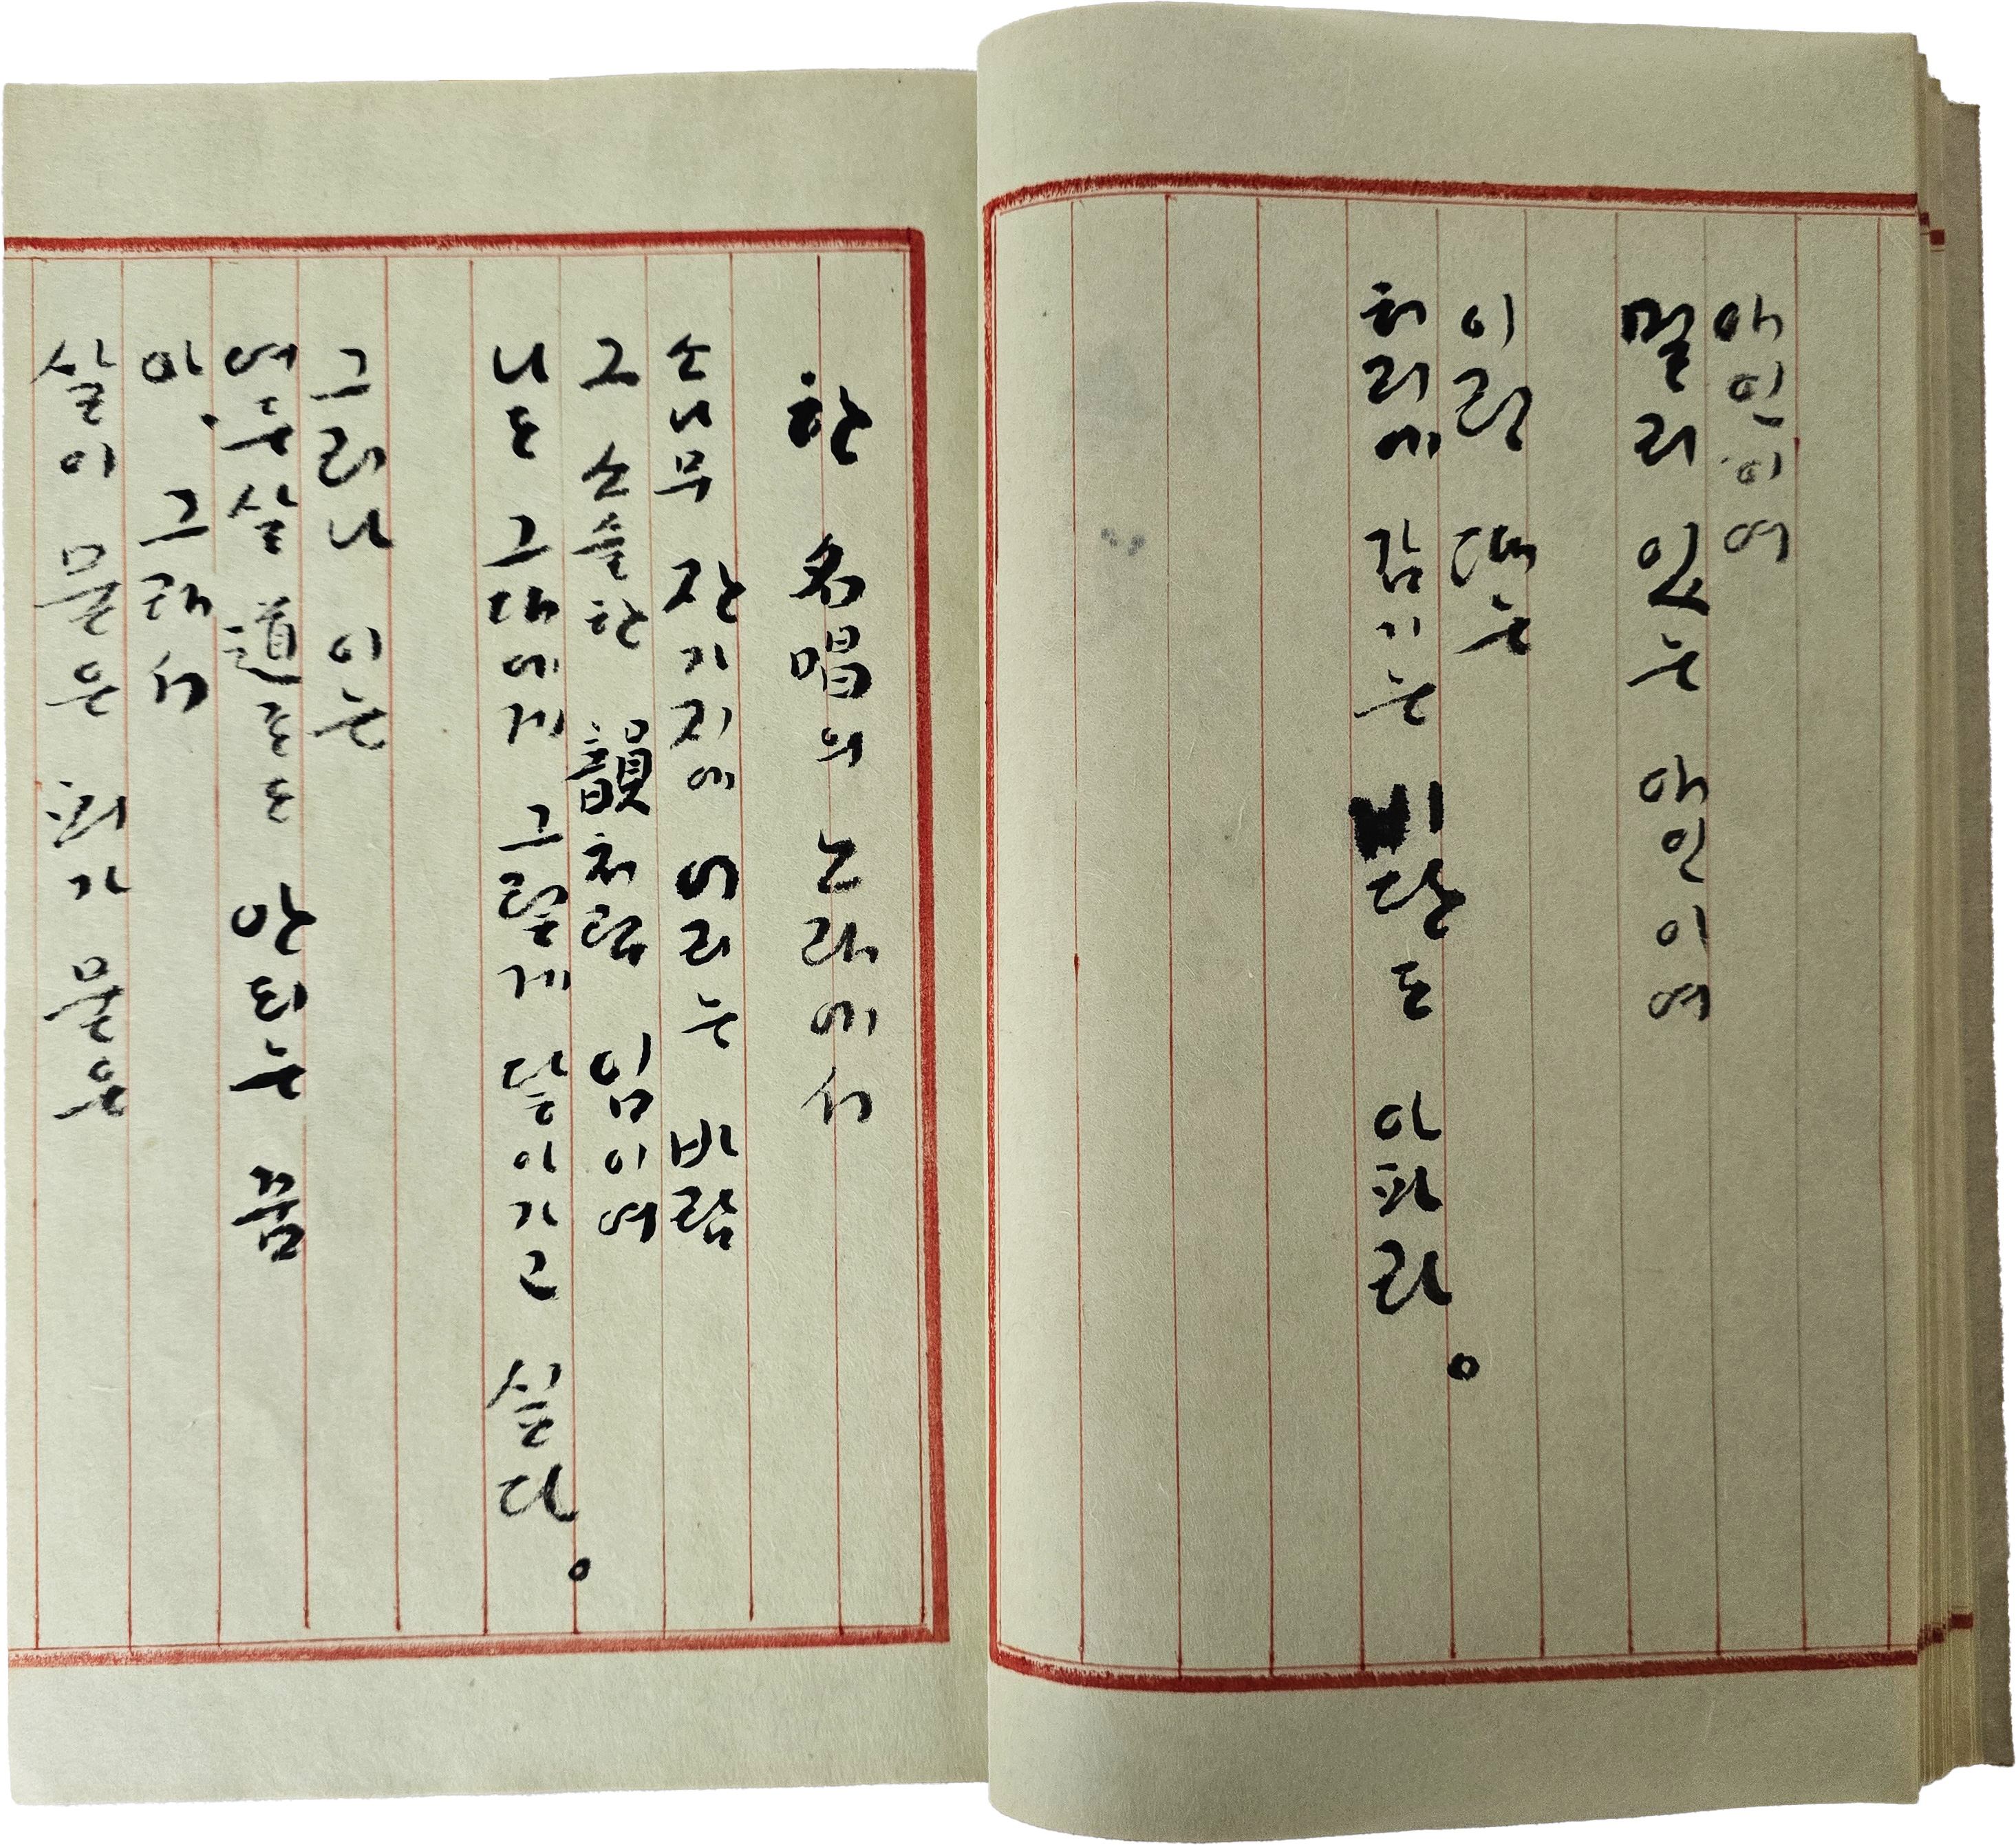 애인이여
멀리 있는 애인이여
이럴 때는
허리에 감기는 비단도 아파라。
한 名唱의 노래에서
소나무 잔가지에 어리는 바람
그 소슬한 韻처럼 임이여
나도 그대에게 그렇게 닿아가고 싶다。
그러나 이는
여든살 道로도 안되는 꿈
아, 그래서
살이 묻은 피가 묻은